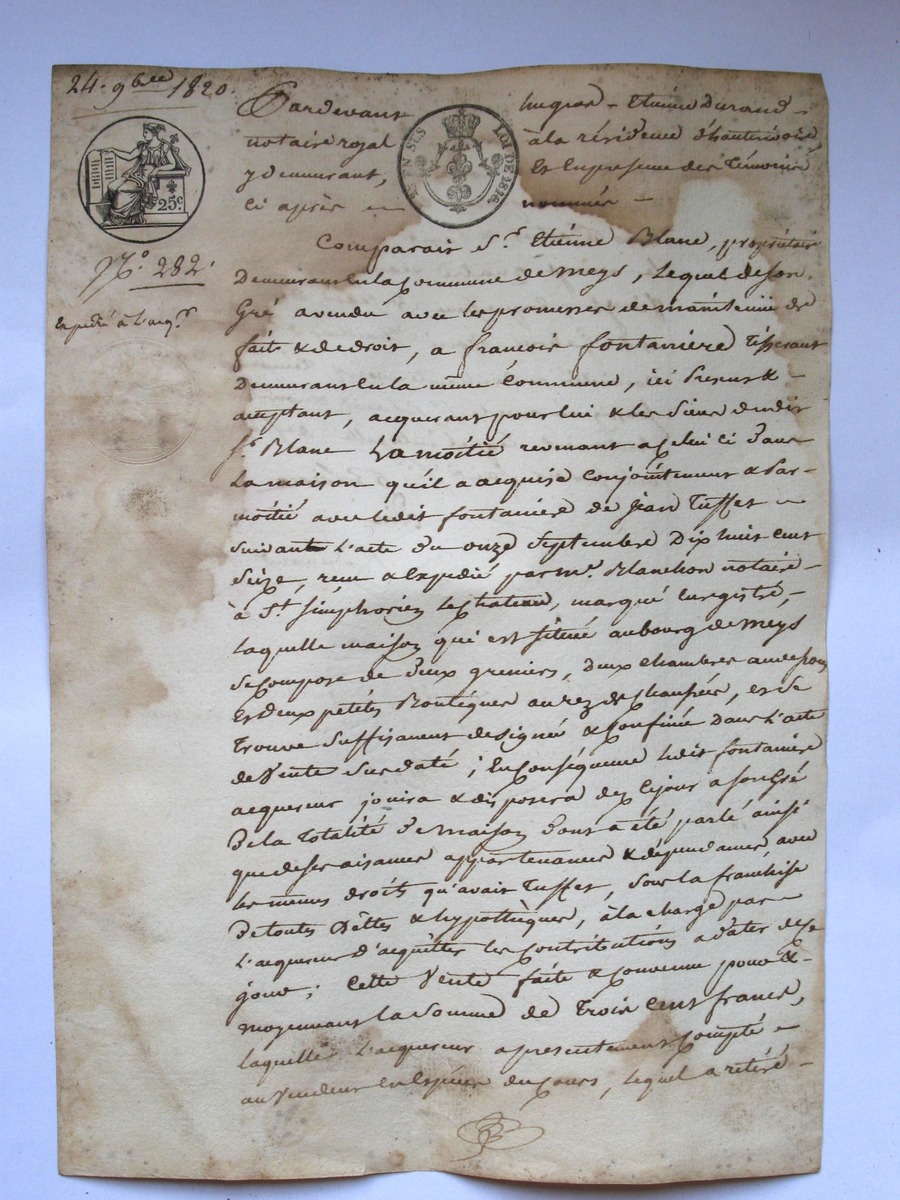 24. 9bre 1820.
Pardevant hugues - Etienne Durand -
notaire royal à la résidence d'hauterivoire
y demeurant, Et En presence des Témoins
Ci après - nommés -
EN SUS
LOI DE 1816.
25c.
N.° 282.
Expedié à l'acq.r
Comparait S.r Etienne Blanc, propriétaire
Demeurant En la Commune de meys, Lequel de son
Gré a vendu avec les promesses de maintenue de
fait & de droit, a françois fontaniere Tisserant
Demeurant En la même Commune, ici Present &
acceptant, acquerant pour lui & les Siens dudit
S.r Blanc La moitié revenant a Celui ci Dans
La maison qu'il a acquise Conjointement & Par
moitié avec ledit fontaniere de Jean Tuffet -
Suivant L'acte du onze Septembre Dix huit cent
Seize, reçu & Expedié par m.e Blanchon notaire -
à St. Simphorien le Chateau, marqué Enregistré, -
Laquelle maison qui est Située au bourg de Meys
Se Compose de Deux greniers, deux Chambres au dessous
Et deux petites Boutiques au rez de Chaussée, est Se
Trouve Suffisament designée & Confinée Dans L'acte
de Vente Susdaté ; En Conséquence ledit fontaniere
acquereur jouira & disposera dez Cejour a son Gré
De la Totalité De maison Dont a été parlé ainsi
que de ses aisances appartenances & dépendances avec
les mêmes droits qu'avait Tuffet, Sous la franchise
De toutes Dettes & hypothèques, à la charge par -
L'acquereur D'acquitter les Contributions a dater de ce
jour ; Cette Vente faite & Convenue pour & -
moyennant la Somme de Trois Cent francs,
laquelle L'acquereur a presentement Compté -
au Vendeur En Espèces du Cours, lequel a retiré -